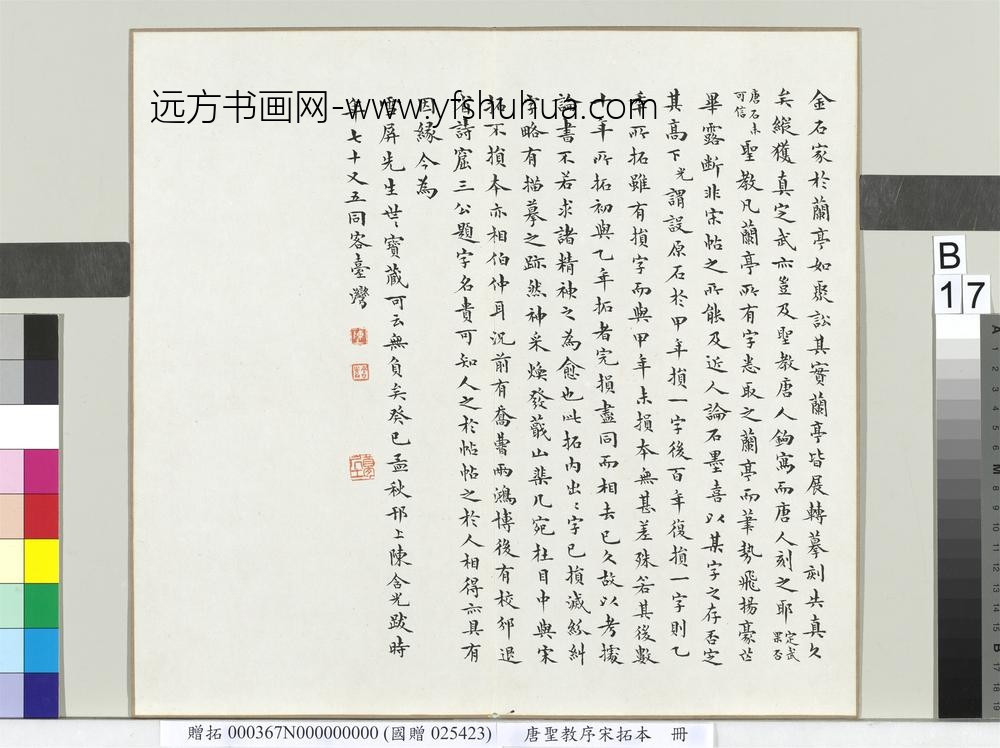 金石家於蘭亭如聚訟其實蘭亭皆展轉摹刻失真久
矣縱獲真定武亦豈及聖教唐人鉤寫而唐人刻之耶定武果否
唐石未可信聖教凡蘭亭所有字悉取之蘭亭而筆勢飛揚豪芒
畢露斷非宋帖之所能及近人論石墨喜以某字之存否定
其高下光謂設原石於甲年損一字後百年復損一字則乙
年所拓雖有損字而與甲年未損本無甚差殊若其後數
十年所拓初與乙年拓者完損盡同而相去已久故以考據
論書不若求諸精神之為愈也此拓內出〻字已損滅紙糾
字略有描摹之跡然神采煥發戢山棐几宛在目中與宋
拓不損本亦相伯仲耳況前有喬鶴兩鴻博後有校邠退
省詩窟三公題字名貴可知人之於帖帖之於人相得亦具有
因緣今為
雪屏先生世〻寶藏可云無負矣癸巳孟秋邗上陳含光跋時
年七十又五同客臺灣
远方书画网-www.yfshuhua.com
B
17
A 1 2 3 4 5 6 M 8 9 10 11 12 13 14 15 B 17 18 19
贈拓 000367N000000000 (國贈 025423) 唐聖教序宋拓本 冊